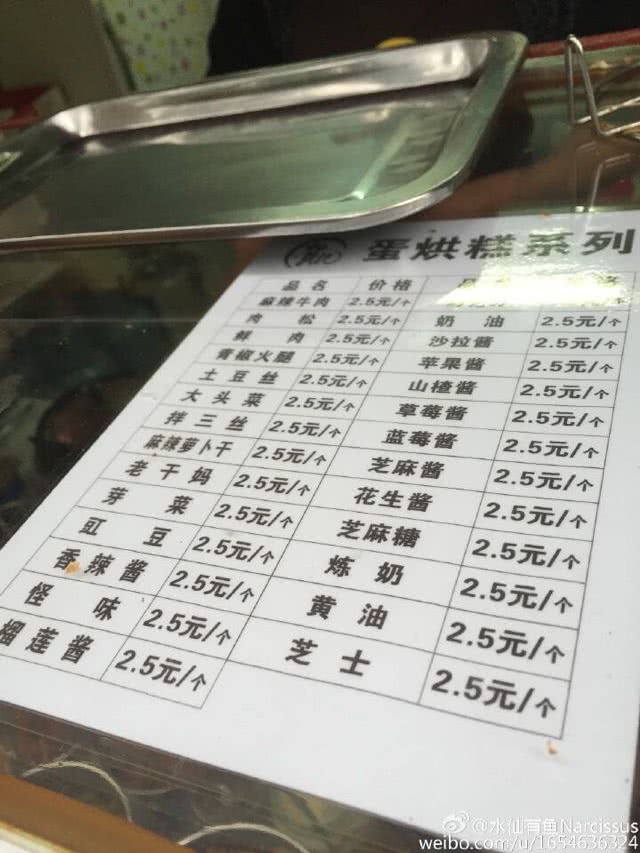 蛋烘糕系列
品名 价格
麻辣牛肉 2.5元/个
肉松 2.5元/个 奶油 2.5元/个
鲜肉 2.5元/个 沙拉酱 2.5元/个
青椒火腿 2.5元/个 苹果酱 2.5元/个
土豆丝 2.5元/个 山楂酱 2.5元/个
大头菜 2.5元/个 草莓酱 2.5元/个
拌三丝 2.5元/个 蓝莓酱 2.5元/个
麻辣萝卜干 2.5元/个 芝麻酱 2.5元/个
老干妈 2.5元/个 花生酱 2.5元/个
芽菜 2.5元/个 芝麻糖 2.5元/个
豇豆 2.5元/个 炼奶 2.5元/个
香辣酱 2.5元/个 黄油 2.5元/个
怪味 2.5元/个 芝士 2.5元/个
榴莲酱 2.5元/个
@水仙有鱼Narcissus
weibo.com/u/1654636324